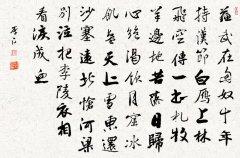 蘇武在匈奴十年
持漢節白雁上林
飛空傳一書札牧
羊邊地苦落日歸
心絕渴飲月窟冰
飢餐天上雪東還
沙塞遠北愴河梁
別泣把李陵衣相
看淚成血